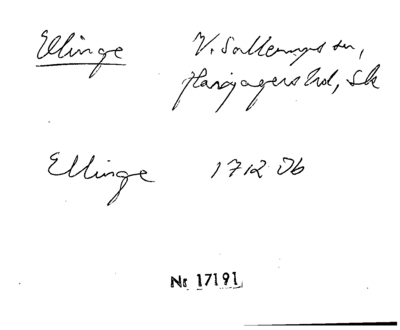 Ellinge V. Sallerups sn,
Harjagers hd, Sk
Ellinge 1712 Db
Nr 17191